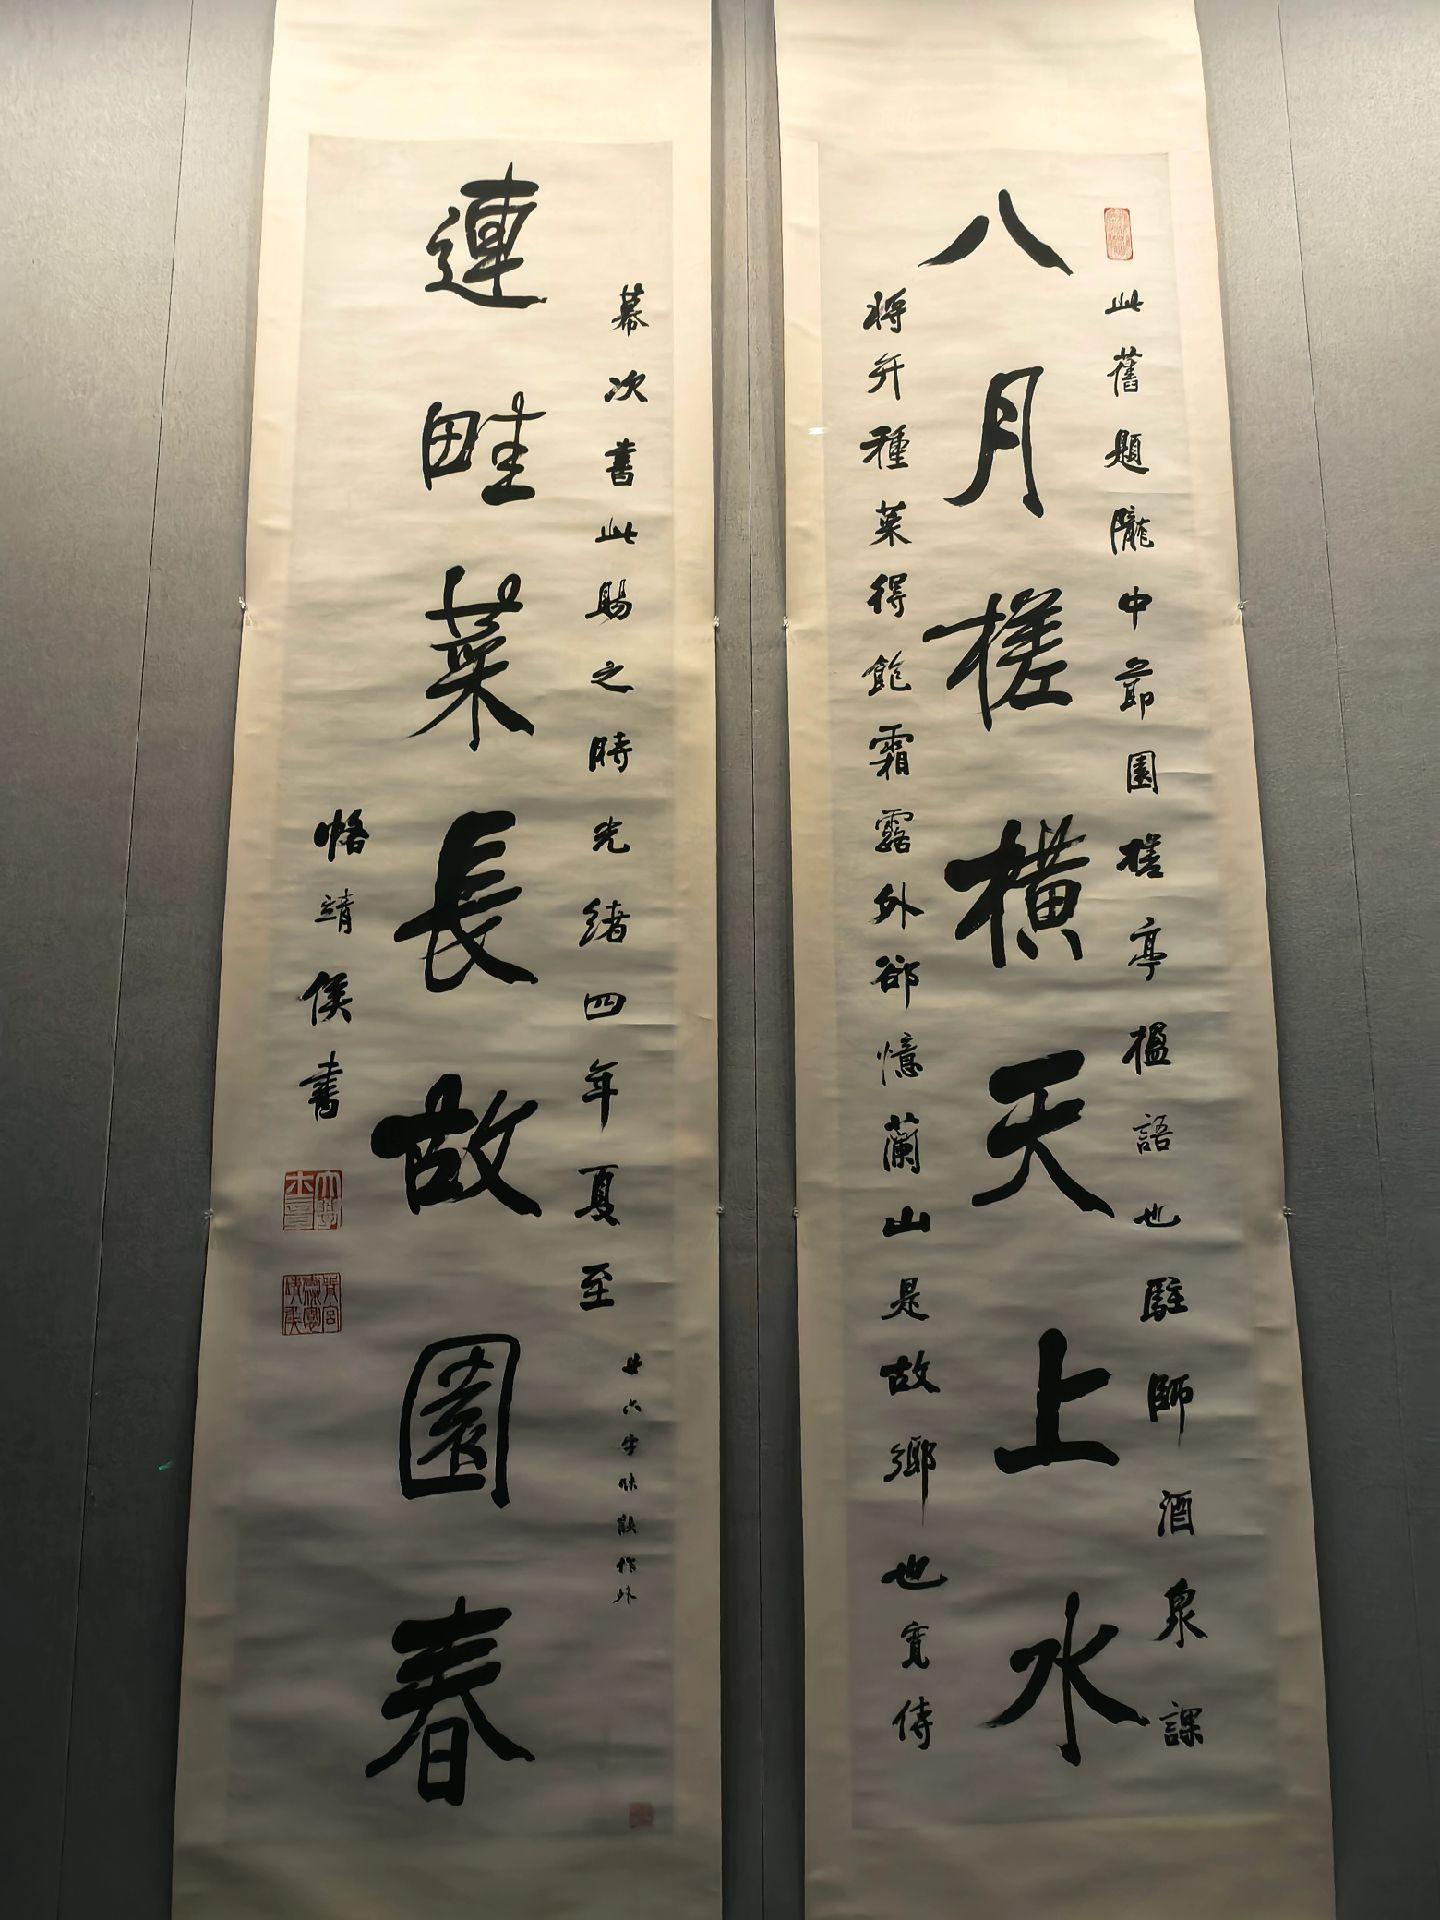 八月槎橫天上水
此舊題隴中節園槎亭楹語也駐師酒泉課
將弁種菜得飽霜露外郤憶蘭山是故鄉也寬侍
連畦菜長故園春
幕次書此賜之時光緒四年夏至
恪靖侯書